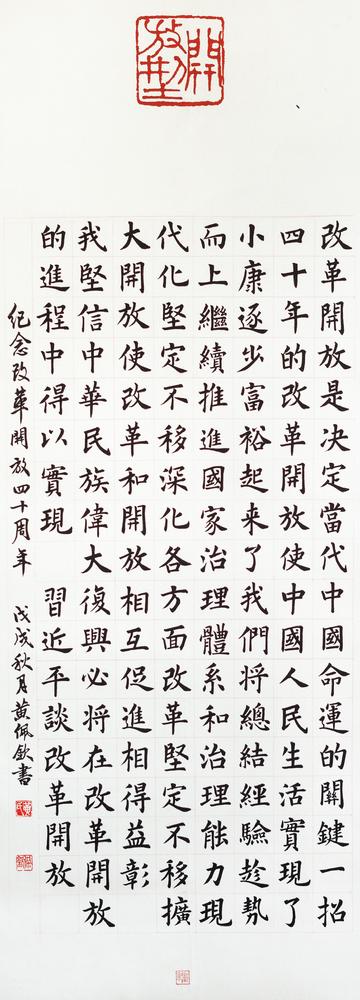 開創放型
改革開放是決定當代中國命運的關鍵一招
四十年的改革開放使中國人民生活實現了
小康逐步富裕起來了我們將總結經驗趁勢
而上繼續推進國家治理體系和治理能力現
代化堅定不移深化各方面改革堅定不移擴
大開放使改革和開放相互促進相得益彰
我堅信中華民族偉大復興必將在改革開放
的進程中得以實現 習近平談改革開放
紀念改革開放四十周年 戊戌秋月黃佩欽書